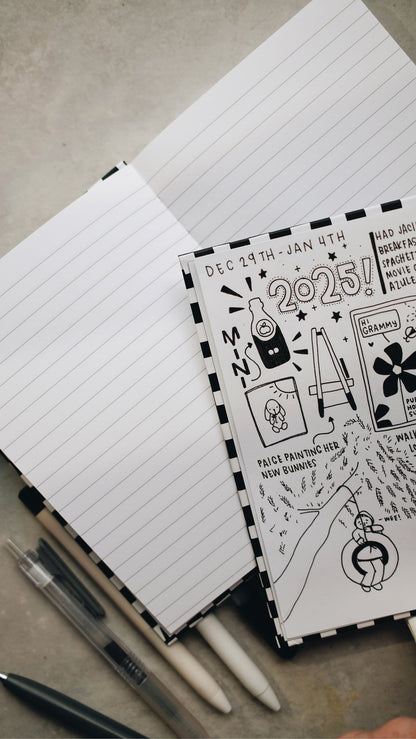 DEC 29TH - JAN 4TH
2025!
HAD JACI
BREAKFAS
SPAGHETT
MOVIE
AZULE
MINI
HI
GRAMMY
PAIGE PAINTING HER
NEW BUNNIES
WALK
-WEE!